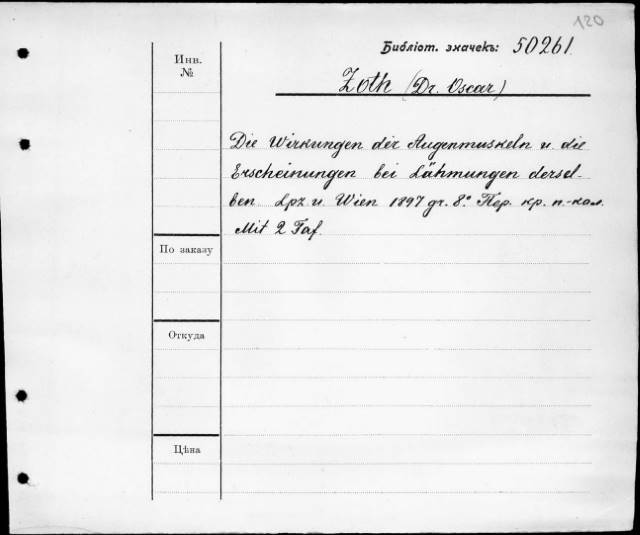 120
Библіот. значекъ: 50261.
Инв.
№
Zoth (Dr. Oscar)
Die Wirkungen der Augenmuskeln u. die
Erscheinungen bei Lähmungen dersel-
ben Lpz. u. Wien 1897 gr. 8° Пер. кр. п.-кол.
Mit 2 Taf.
По заказу
Откуда
Цѣна